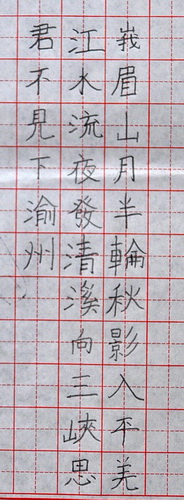 峩眉山月半輪秋影入平羌
江水流夜發清溪向三峽思
君不見下渝州